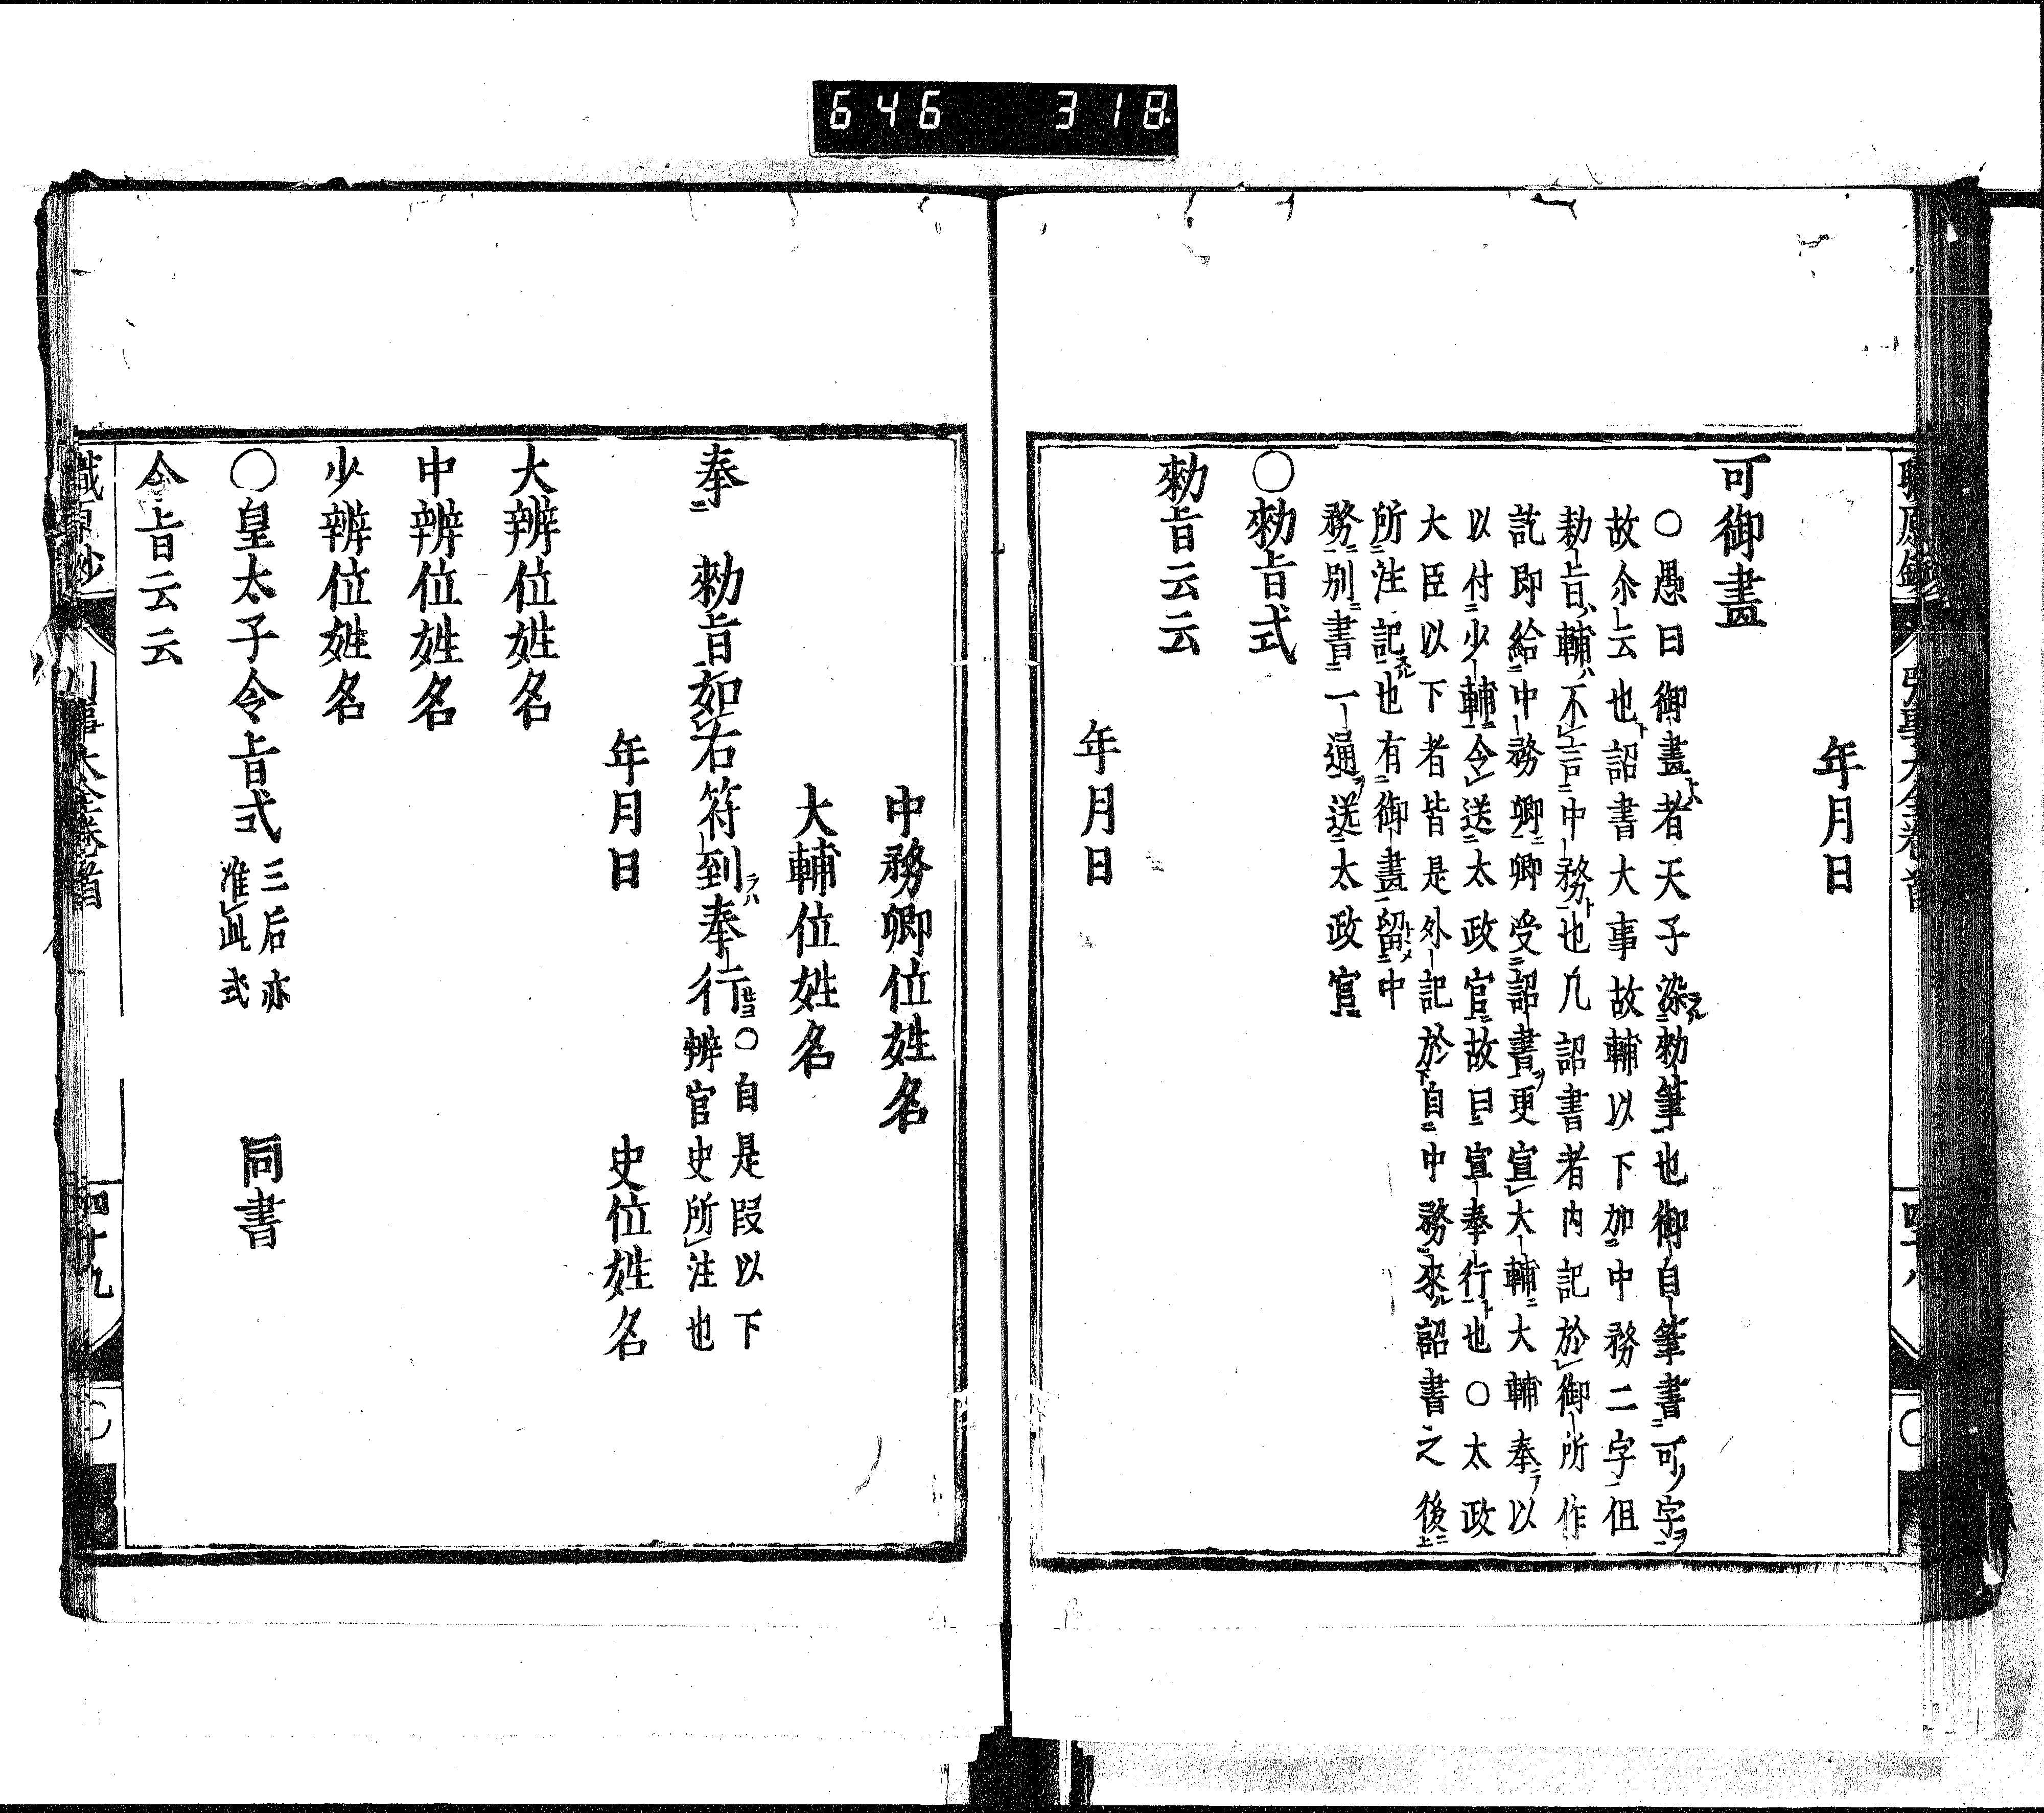 646 318
年月日
可御畫
○愚曰御畫者天子染勅筆也御自筆書可字
故尒云也詔書大事故輔以下加中務二字但
勅旨輔不言中務也凡詔書者内記於御所作
訖即給中務卿卿受詔書更宣大輔大輔奉以
以付少輔令送太政官故曰宣奉行也○太政
大臣以下者皆是外記於自中務來詔書之後
所注記也有御畫留中
務別書一通送太政官
○勅旨式
勅旨云云
年月日
中務卿位姓名
大輔位姓名
奉 勅旨如右符到奉行○自是段以下
辨官史所注也
年月日 史位姓名
大辨位姓名
中辨位姓名
少辨位姓名
○皇太子令旨式三后亦
准此式 同書
令旨云云
職原抄 引事大全卷首 四十九